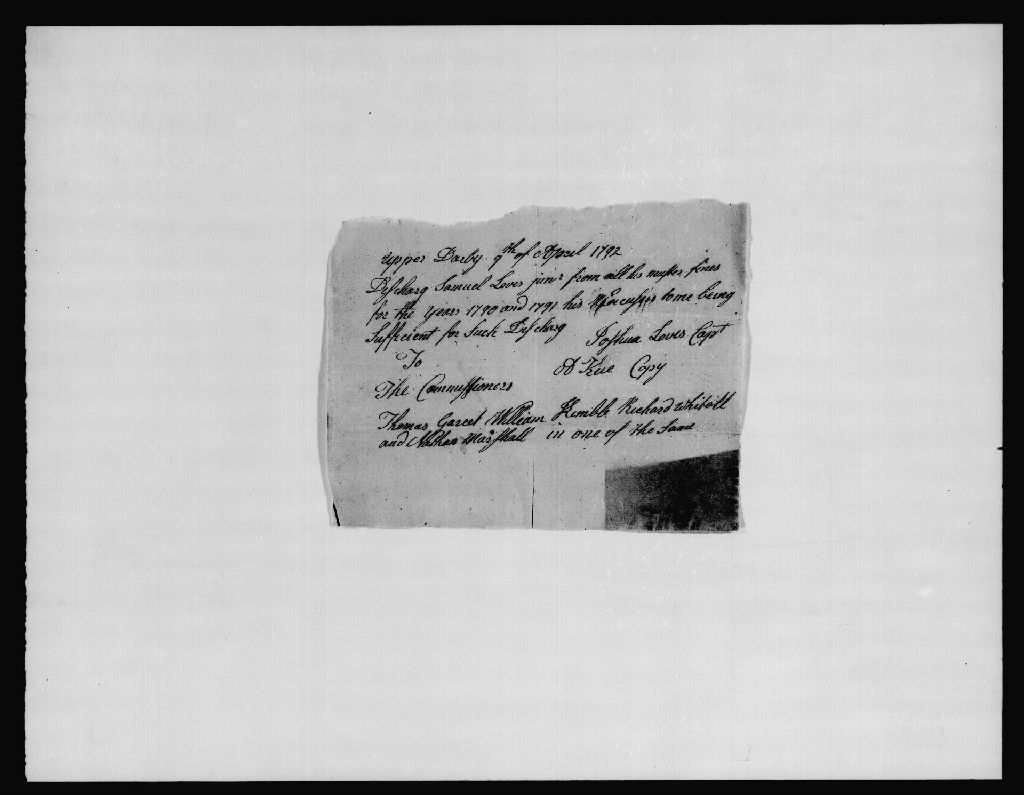 Upper Darby 9th of April 1792
Discharg Samuel Levis junr from all his muster fines
for the years 1790 and 1791 his Excuses to me being
Sufficent for Such Discharg Joshua Levis Capt
To A True Copy
The Commissioners
Thomas Garret William Kimble Richard
and Nathan Marshall in one of the Same